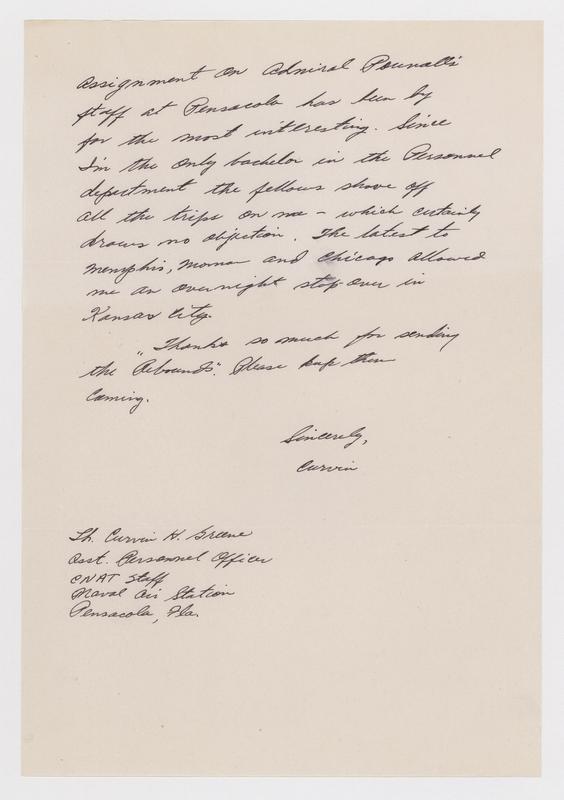 assignment on Admiral Pownall's
staff at Pensacola has been by
far the most interesting. Since
I'm the only bachelor in the Personnel
department the fellows shove off
all the trips on me - which certainly
draws no objection. The latest to
Memphis, and Chicago allowed
me an overnight stop-over in
Kansas City.
Thanks so much for sending
the "Rebounds". Please keep them
coming.
Sincerely,
Curvin
Lt. Curvin H. Greene
Asst. Personnel Officer
CNAT Staff
Naval Air Station
Pensacola, Fla.